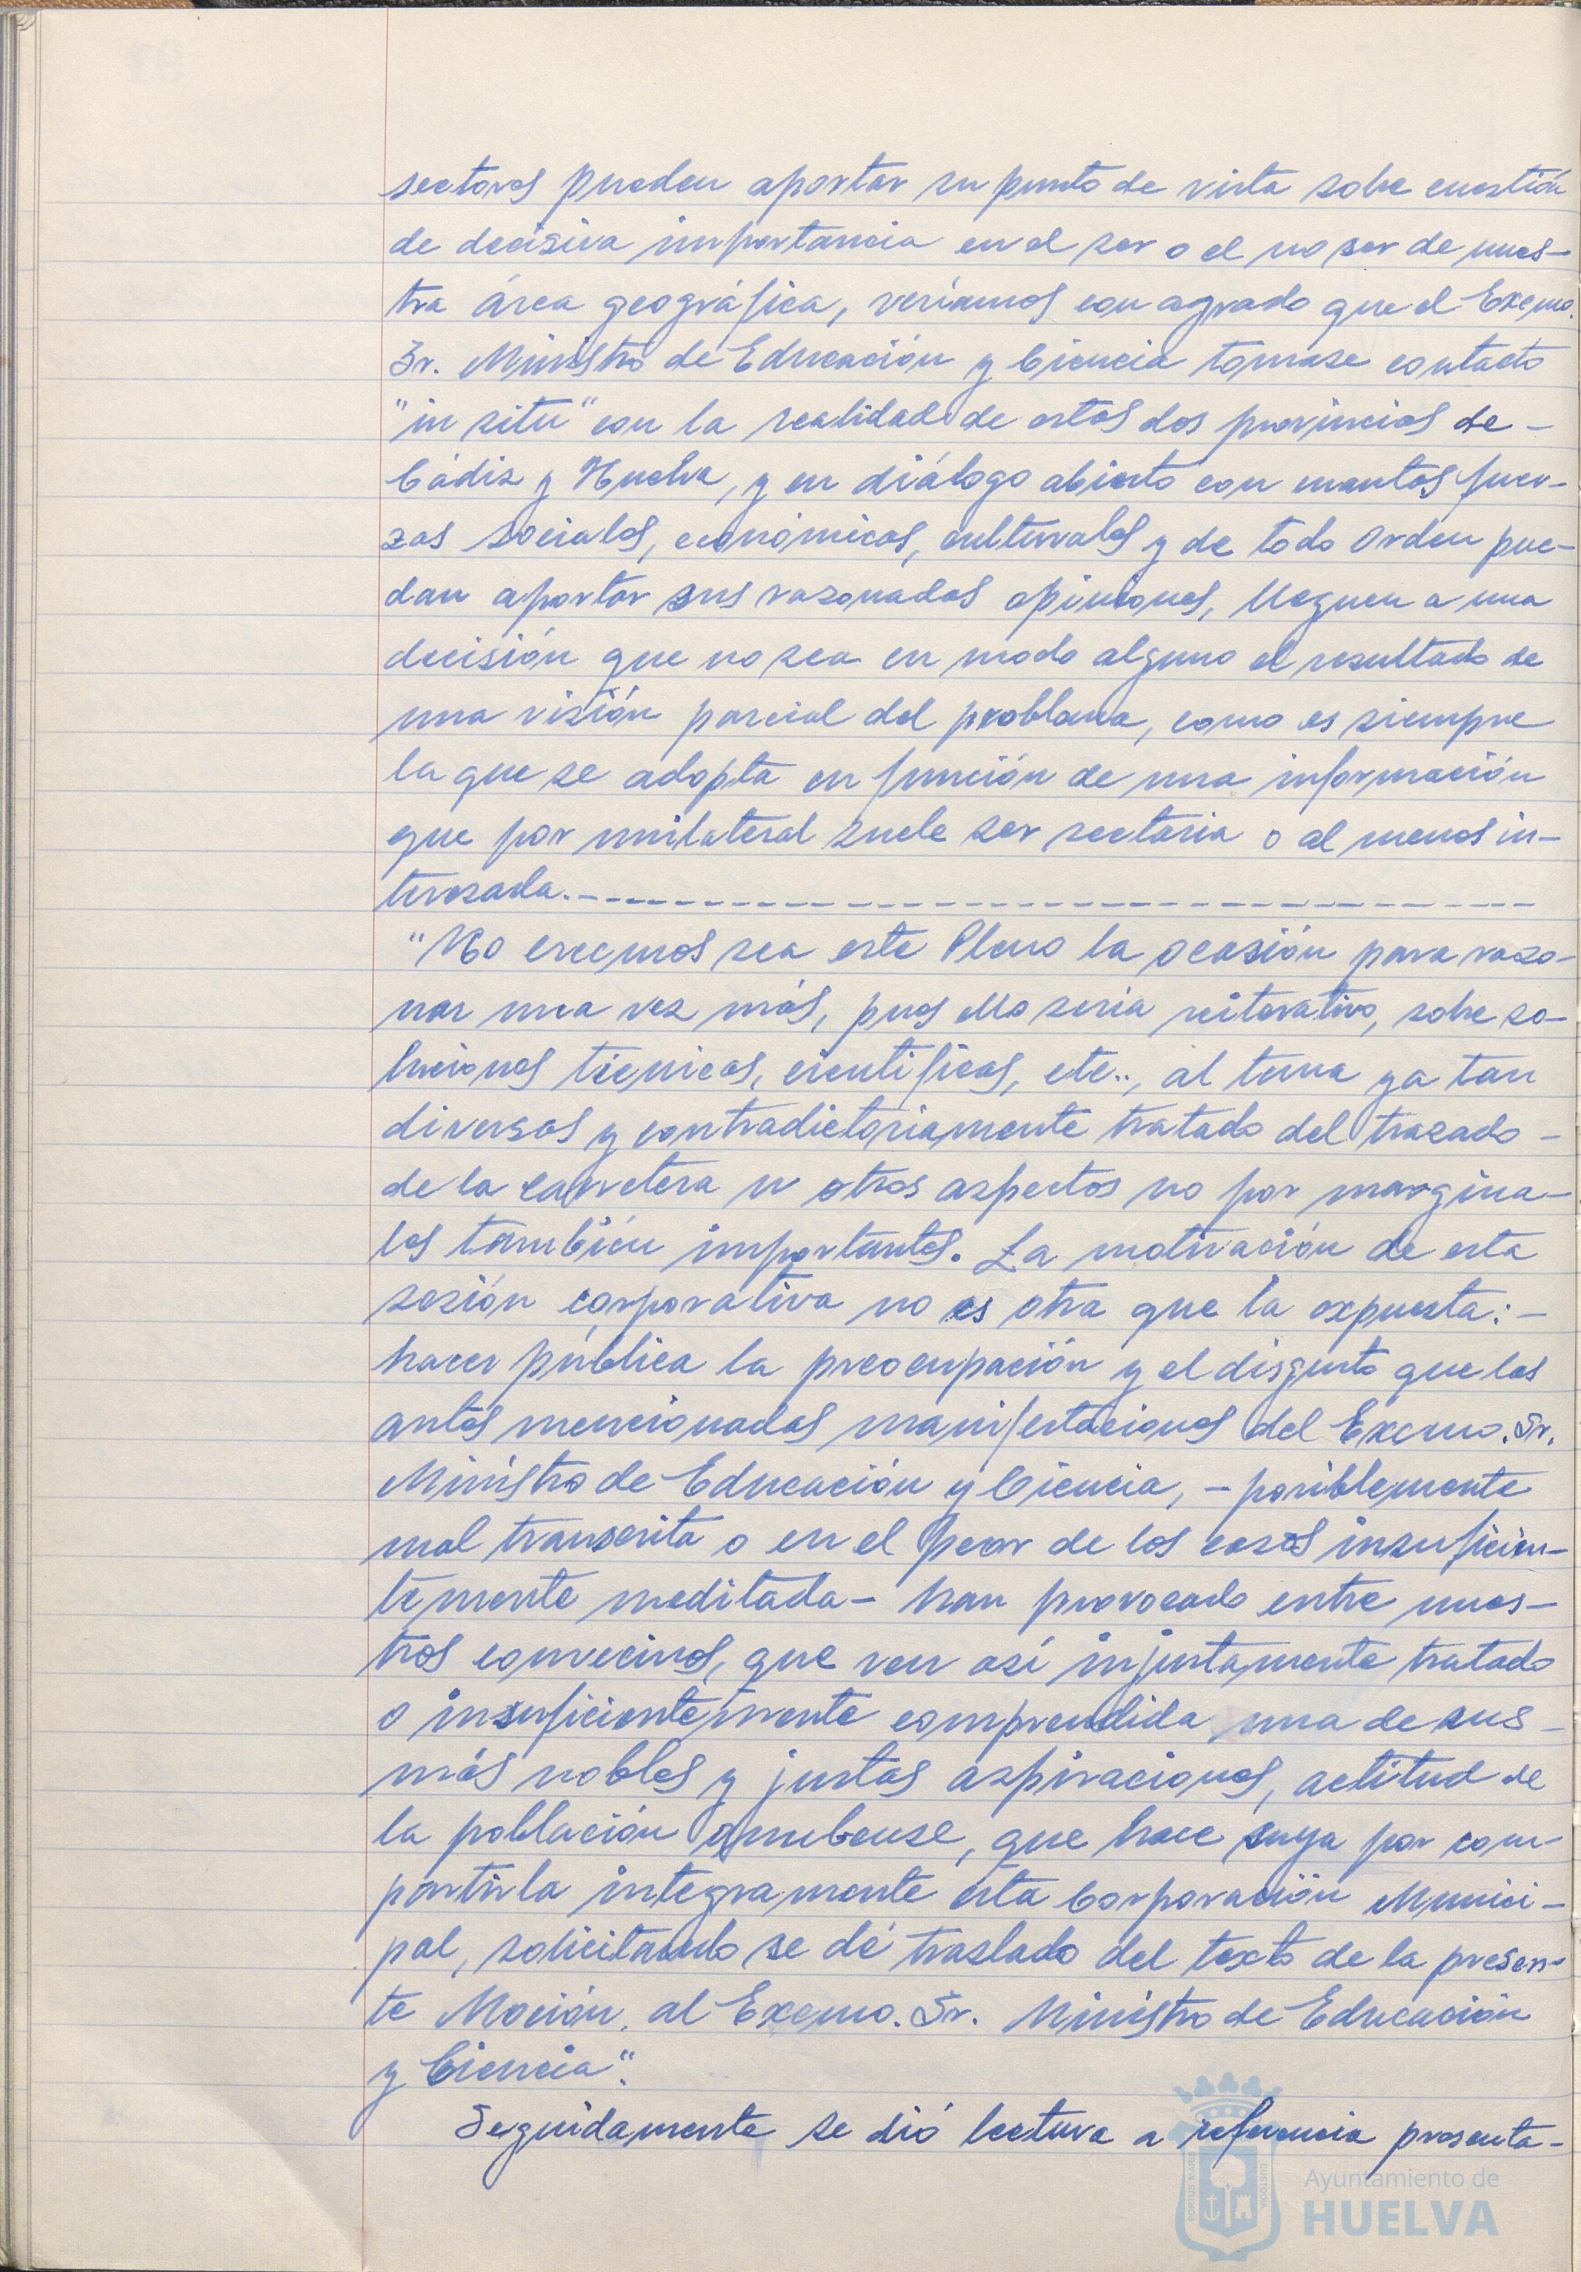 sectores pueden aportar su punto de vista sobre cuestión
de decisiva importancia en el ser o el no ser de nues-
tra área geográfica, veríamos con agrado que el Excmo.
Sr. Ministro de Educación y Ciencia tomase contacto
"in situ" con la realidad de estas dos provincias de -
Cádiz y Huelva, y en diálogo abierto con cuantas fuer-
zas sociales, económicas, culturales y de todo orden pue-
dan aportar sus razonadas opiniones, lleguen a una
decisión que no sea en modo alguno el resultado de
una visión parcial del problema, como es siempre
la que se adopta en función de una información
que por unilateral suele ser sectaria o al menos in-
teresada.-
"No creemos sea este Pleno la ocasión para razo-
nar una vez más, pues ello sería reiterativo, sobre so-
luciones técnicas, científicas, etc.., al tema ya tan
diversas y contradictoriamente tratado del trazado -
de la carretera u otros aspectos no por margina-
les también importantes. La motivación de esta
sesión corporativa no es otra que la expuesta: -
hacer pública la preocupación y el disgusto que las
antes mencionadas manifestaciones del Excmo. Sr.
Ministro de Educación y Ciencia, - posiblemente
mal transcrita o en el peor de los casos insuficien-
temente meditada - han provocado entre nues-
tros convecinos, que ven así injustamente tratado
o insuficientemente comprendida una de sus -
más nobles y justas aspiraciones, actitud de
la población onubense, que hace suya por com-
partirla integramente esta Corporación Munici-
pal, solicitando se dé traslado del texto de la presen-
te Moción, al Excmo. Sr. Ministro de Educación
y Ciencia".
Seguidamente se dió lectura a referencia presenta-
PORTUS MARIS CUSTODIA
Ayuntamiento de
HUELVA